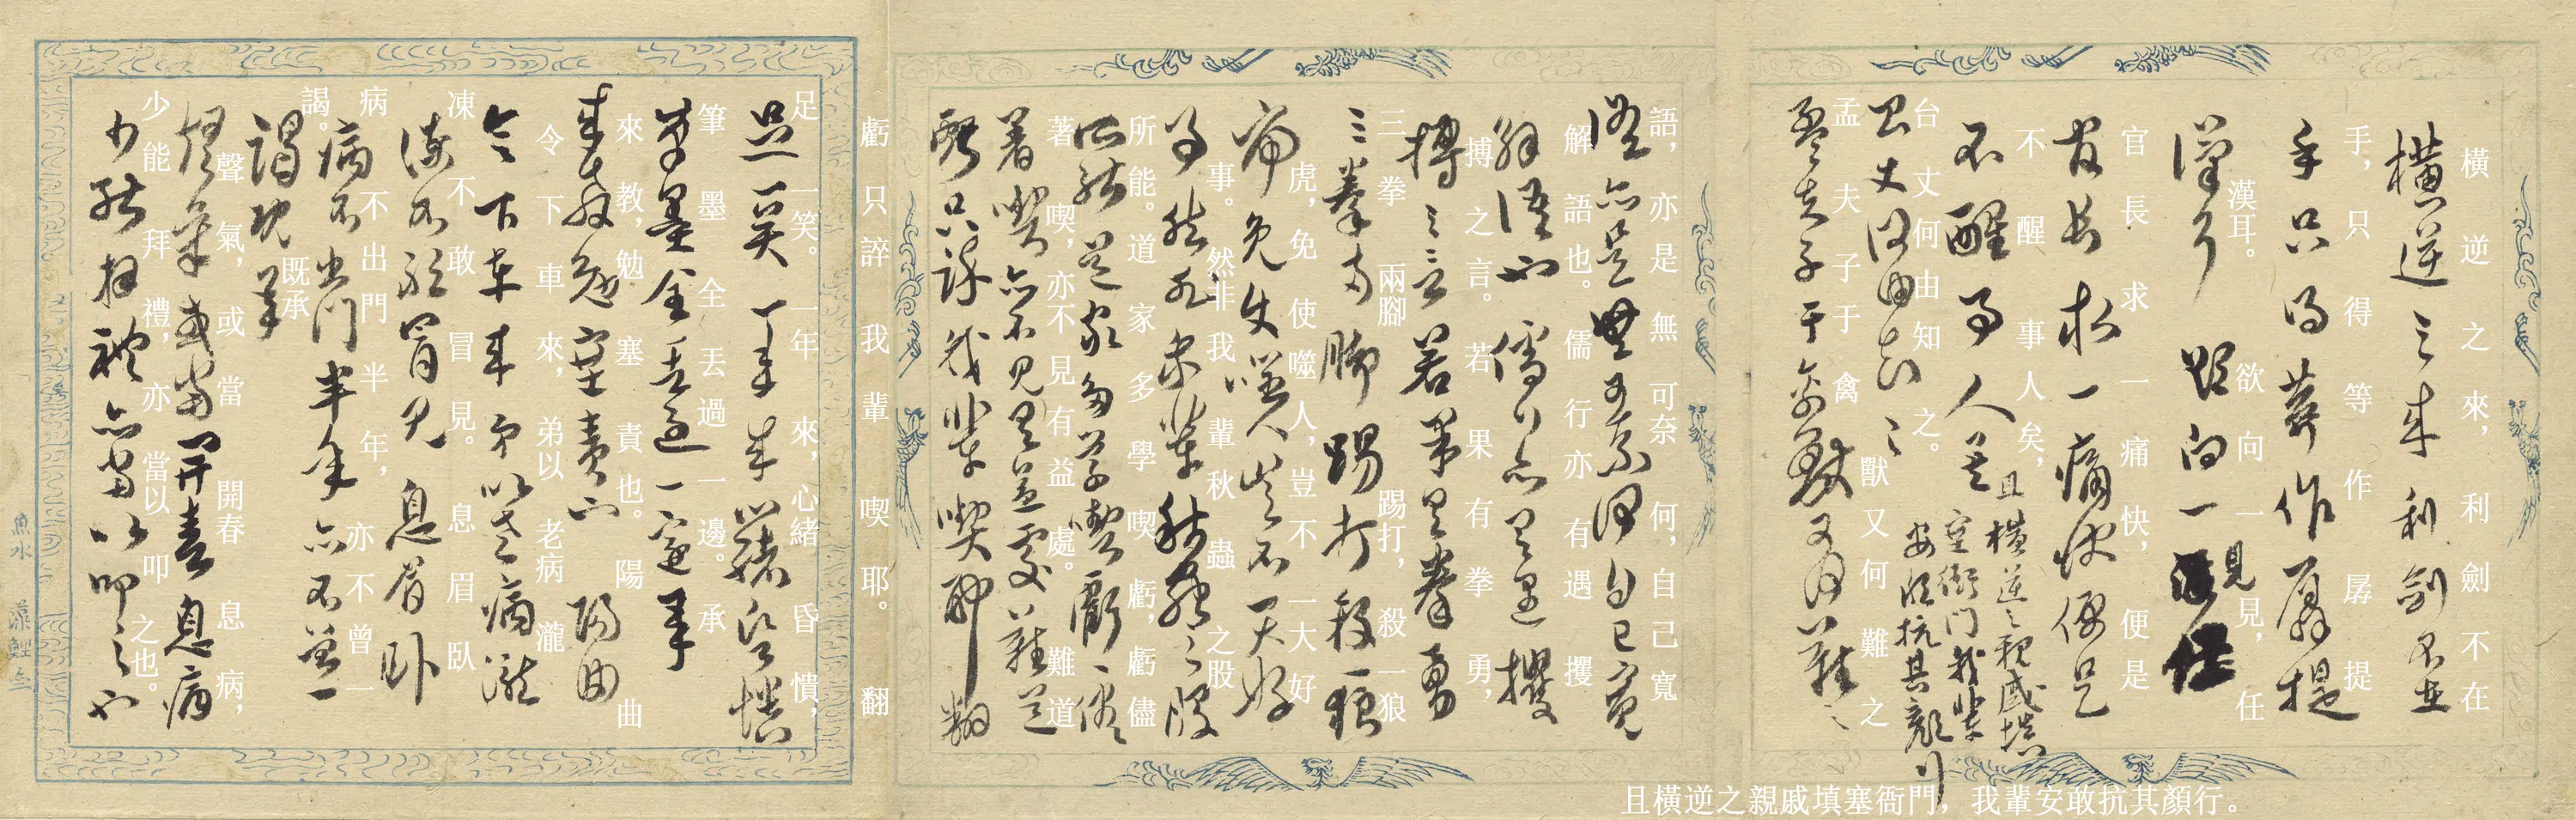 橫逆之來，利劍不在
手，只得等作孱提
漢耳。欲向一見，任
官長求一痛快，便是
不醒事人矣，
且橫逆之親戚填塞衙門，我輩安敢抗其顏行。
台丈何由知之。
孟夫子于禽獸又何難之
語，亦是無可奈何，自己寬
解語也。儒行亦有遇攫
搏之言。若果有拳勇，
三拳兩腳踢打，殺一狼
虎，免使噬人，豈不一大好
事。然非我輩秋蟲之股
所能。道家多學喫虧，虧儘
著喫，亦不見有益處。難道
虧只誶我輩喫耶。翻
足一笑。一年來，心緒昏憒，
筆墨全丟過一邊。承
來教，勉塞責也。陽曲
令下車來，弟以老病瀧
凍不敢冒見。息眉臥
病不出門半年，亦不曾一
謁。既承
聲氣，或當開春息病，
少能拜禮，亦當以叩之也。
魚水 藻鯉